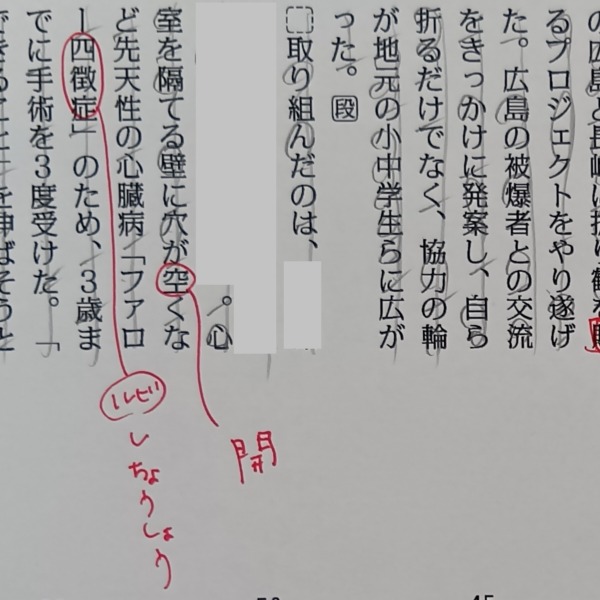 の広島と長崎に折り鶴を
るプロジェクトをやり遂げ
た。広島の被爆者との交流
をきっかけに発案し、自ら
折るだけでなく、協力の輪
が地元の小中学生らに広が
った。段
取り組んだのは、
。心
室を隔てる壁に穴が空くな
ど先天性の心臓病「ファロ
ー四徴症」のため、3歳ま
でに手術を3度受けた。「
を伸ばそうと
開
ルビ
しちょうしょう